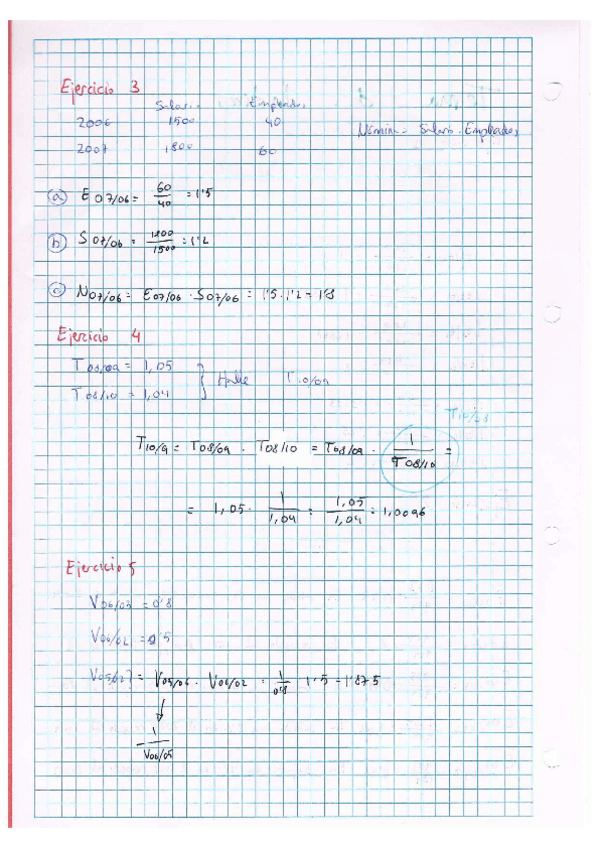 Ejercicio 3
Salario Empleados
2006 1500 40
Nómina = Salario · Empleados
2007 1800 60
a) E 07/06 = 60/40 = 1'5
b) S 07/06 = 1800/1500 = 1'2
c) N 07/06 = E 07/06 · S 07/06 = 1'5 · 1'2 = 1'8
Ejercicio 4
T 08/09 = 1,05
T 08/10 = 1,04 } Halle T 10/09
T 10/08
T 10/9 = T 08/09 · T 08/10 = T 08/09 · 1/T 08/10 =
= 1,05 · 1/1,04 = 1,05/1,04 = 1,0096
Ejercicio 5
V 06/05 = 0'8
V 06/02 = 1'5
V 05/02? = V 05/06 · V 06/02 = 1/0'8 1'5 = 1'875
1/V 06/05